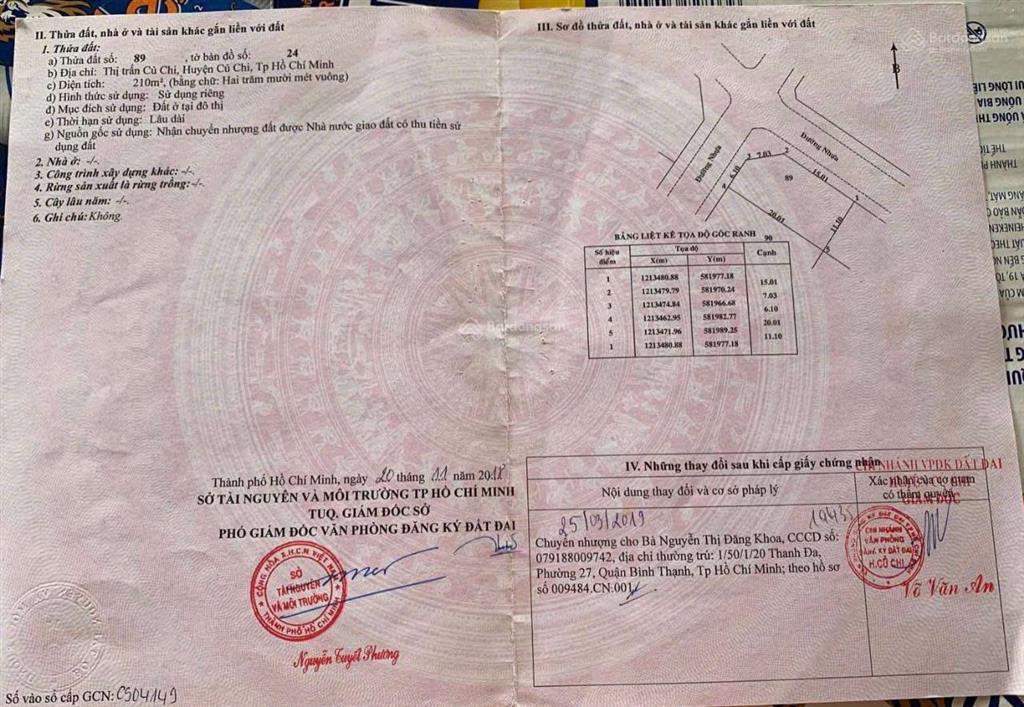 II. Thửa đất, nhà ở và tài sản khác gắn liền với đất
1. Thửa đất:
a) Thửa đất số: 89, tờ bản đồ số: 24
b) Địa chỉ: Thị trấn Củ Chi, Huyện Củ Chi, Tp Hồ Chí Minh
c) Diện tích: 210m², (bằng chữ: Hai trăm mười mét vuông)
d) Hình thức sử dụng: Sử dụng riêng
đ) Mục đích sử dụng: Đất ở tại đô thị
e) Thời hạn sử dụng: Lâu dài
g) Nguồn gốc sử dụng: Nhận chuyển nhượng đất được Nhà nước giao đất có thu tiền sử
dụng đất
2. Nhà ở: -/-.
3. Công trình xây dựng khác: -/-.
4. Rừng sản xuất là rừng trồng:-/-.
5. Cây lâu năm: -/-.
6. Ghi chú:Không.
Thành phố Hồ Chí Minh, ngày 20 tháng 11 năm 2018
SỞ TÀI NGUYÊN VÀ MÔI TRƯỜNG TP HỒ CHÍ MINH
TUQ. GIÁM ĐỐC SỞ
PHÓ GIÁM ĐỐC VĂN PHÒNG ĐĂNG KÝ ĐẤT ĐAI
CỘNG HÒA X.H.C.N VIỆT NAM
SỞ
TÀI NGUYÊN
VÀ MÔI TRƯỜNG
THÀNH PHỐ HỒ CHÍ MINH
Nguyễn Tuyết Phương
Số vào sổ cấp GCN: CS04149
III. Sơ đồ thửa đất, nhà ở và tài sản khác gắn liền với đất
Batdongsan
B
Đường Nhựa
Đường Nhựa
3 7.03 2
6.10
89
15.01
4
1
20.01
11.10
5
90
BẢNG LIỆT KÊ TỌA ĐỘ GÓC RANH
Số hiệu điểm Tọa độ Cạnh
X(m) Y(m)
1 1213480.88 581977.18
15.01
2 1213479.79 581970.24
7.03
3 1213474.84 581966.68
6.10
4 1213462.95 581982.77
20.01
5 1213471.96 581989.25
11.10
1 1213480.88 581977.18
Batdongsan
IV. Những thay đổi sau khi cấp giấy chứng nhận
Nội dung thay đổi và cơ sở pháp lý
Xác nhận của cơ quan
có thẩm quyền
CHI NHÁNH VPĐK ĐẤT ĐAI
GIÁM ĐỐC
25/03/2019
Chuyển nhượng cho Bà Nguyễn Thị Đăng Khoa, CCCD số:
079188009742, địa chỉ thường trú: 1/50/1/20 Thanh Đa,
Phường 27, Quận Bình Thạnh, Tp Hồ Chí Minh; theo hồ sơ
số 009484.CN:001
CHI NHÁNH
VĂN PHÒNG
ĐĂNG KÝ ĐẤT ĐAI
H.CỦ CHI
Võ Văn An